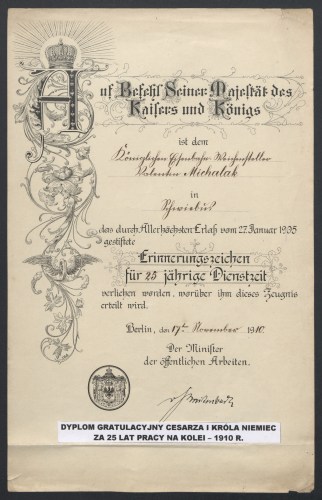 Auf Befehl Seiner Majestät des
Kaisers und Königs
ist dem
Königlichen Eisenbahn Weichensteller
Valentin Michalak
in
Schwiebus
das durch Allerhöchsten Erlaß vom 27. Januar 1905
gestiftete
Erinnerungszeichen
für 25 jährige Dienstzeit
verliehen worden, worüber ihm dieses Zeugnis
erteilt wird.
Berlin, den 17ten November 1910.
Der Minister
der öffentlichen Arbeiten.
DYPLOM GRATULACYJNY CESARZA I KRÓLA NIEMIEC
ZA 25 LAT PRACY NA KOLEI – 1910 R.